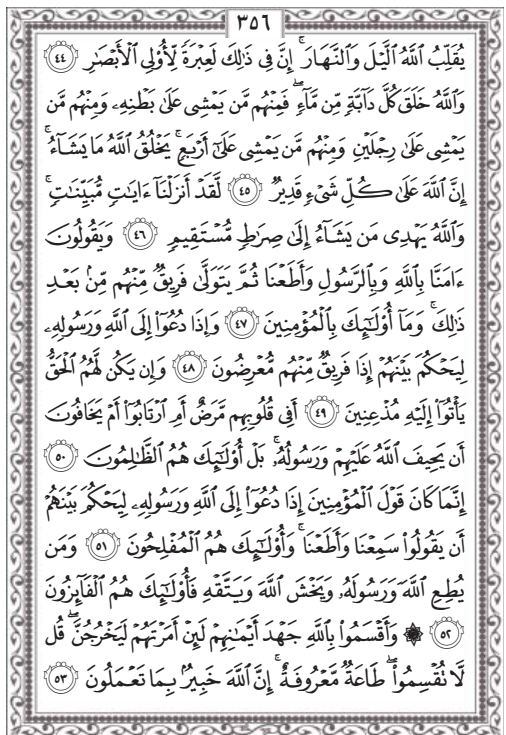 ٣٥٦
يُقَلِّبُ ٱللَّهُ ٱلَّيۡلَ وَٱلنَّهَارَۚ إِنَّ فِى ذَٰلِكَ لَعِبۡرَةٗ لِّأُوْلِى ٱلۡأَبۡصَٰرِ ٤٤
وَٱللَّهُ خَلَقَ كُلَّ دَآبَّةٖ مِّن مَّآءٖۖ فَمِنۡهُم مَّن يَمۡشِى عَلَىٰ بَطۡنِهِۦ وَمِنۡهُم مَّن
يَمۡشِى عَلَىٰ رِجۡلَيۡنِ وَمِنۡهُم مَّن يَمۡشِى عَلَىٰٓ أَرۡبَعٖۚ يَخۡلُقُ ٱللَّهُ مَا يَشَآءُۚ
إِنَّ ٱللَّهَ عَلَىٰ كُلِّ شَىۡءٖ قَدِيرٞ ٤٥ لَّقَدۡ أَنزَلۡنَآ ءَايَٰتٖ مُّبَيِّنَٰتٖۚ
وَٱللَّهُ يَهۡدِى مَن يَشَآءُ إِلَىٰ صِرَٰطٖ مُّسۡتَقِيمٖ ٤٦ وَيَقُولُونَ
ءَامَنَّا بِٱللَّهِ وَبِٱلرَّسُولِ وَأَطَعۡنَا ثُمَّ يَتَوَلَّىٰ فَرِيقٞ مِّنۡهُم مِّنۢ بَعۡدِ
ذَٰلِكَۚ وَمَآ أُوْلَٰٓئِكَ بِٱلۡمُؤۡمِنِينَ ٤٧ وَإِذَا دُعُوٓاْ إِلَى ٱللَّهِ وَرَسُولِهِۦ
لِيَحۡكُمَ بَيۡنَهُمۡ إِذَا فَرِيقٞ مِّنۡهُم مُّعۡرِضُونَ ٤٨ وَإِن يَكُن لَّهُمُ ٱلۡحَقُّ
يَأۡتُوٓاْ إِلَيۡهِ مُذۡعِنِينَ ٤٩ أَفِى قُلُوبِهِم مَّرَضٌ أَمِ ٱرۡتَابُوٓاْ أَمۡ يَخَافُونَ
أَن يَحِيفَ ٱللَّهُ عَلَيۡهِمۡ وَرَسُولُهُۥۚ بَلۡ أُوْلَٰٓئِكَ هُمُ ٱلظَّٰلِمُونَ ٥٠
إِنَّمَا كَانَ قَوۡلَ ٱلۡمُؤۡمِنِينَ إِذَا دُعُوٓاْ إِلَى ٱللَّهِ وَرَسُولِهِۦ لِيَحۡكُمَ بَيۡنَهُمۡ
أَن يَقُولُواْ سَمِعۡنَا وَأَطَعۡنَاۚ وَأُوْلَٰٓئِكَ هُمُ ٱلۡمُفۡلِحُونَ ٥١ وَمَن
يُطِعِ ٱللَّهَ وَرَسُولَهُۥ وَيَخۡشَ ٱللَّهَ وَيَتَّقۡهِ فَأُوْلَٰٓئِكَ هُمُ ٱلۡفَآئِزُونَ
٥٢ ۞ وَأَقۡسَمُواْ بِٱللَّهِ جَهۡدَ أَيۡمَٰنِهِمۡ لَئِنۡ أَمَرۡتَهُمۡ لَيَخۡرُجُنَّۖ قُل
لَّا تُقۡسِمُواْۖ طَاعَةٞ مَّعۡرُوفَةٌۚ إِنَّ ٱللَّهَ خَبِيرُۢ بِمَا تَعۡمَلُونَ ٥٣